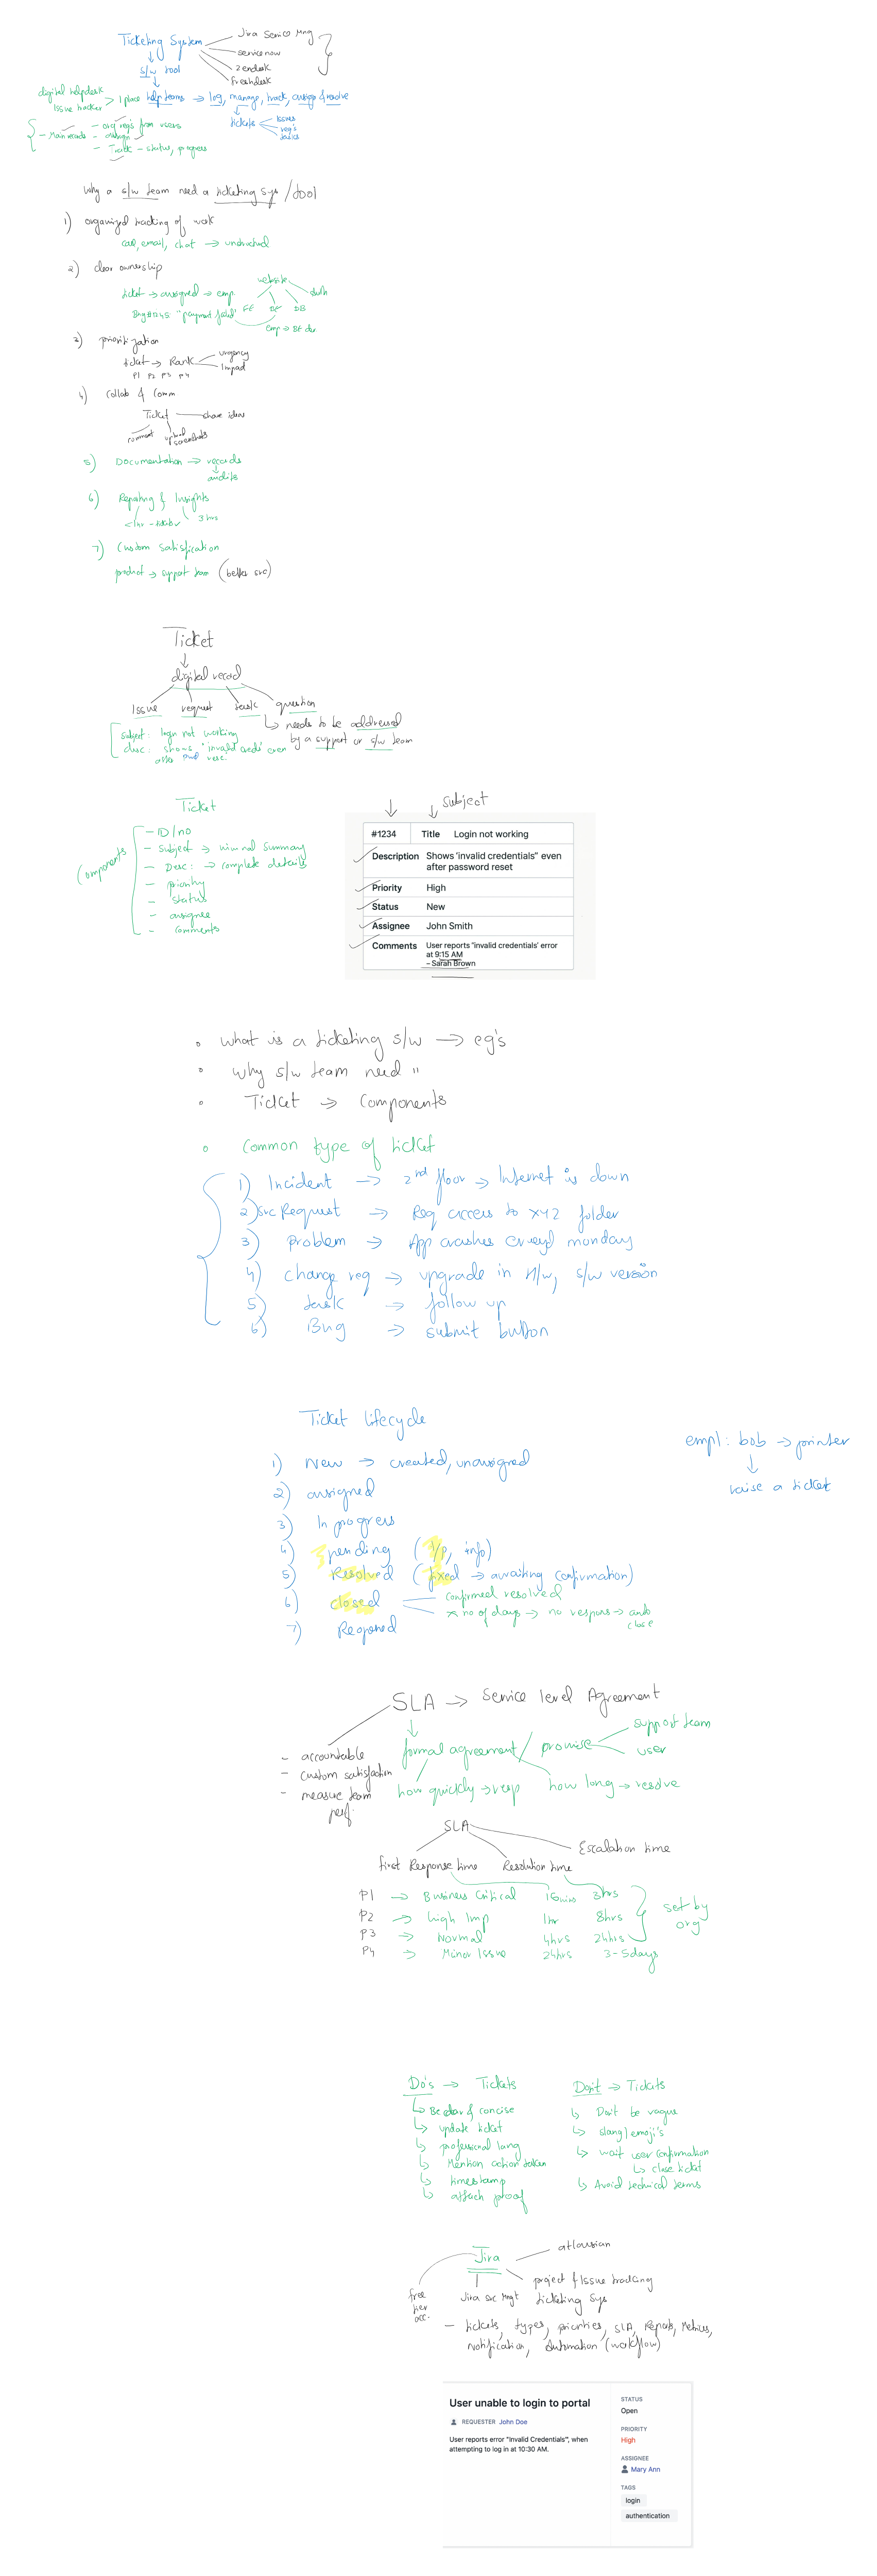 Ticketing System
Jira Service Mng
servicenow
zendesk
freshdesk
s/w tool
digital helpdesk
Issue tracker > 1 place help teams → log, manage, track, assign & resolve
tickets
Issues
req's
tasks
- Main needs - org req's from users
- assign
- Track - status, progress
Why a s/w team need a ticketing sys / tool
1) organized tracking of work
call, email, chat → unstructured
2) clear ownership
ticket → assigned → emp
website
FE BE DB Auth
Bug#12345: "payment failed"
emp → BE dev
3) prioritization
ticket → Rank
urgency
Impact
P1 P2 P3 P4
4) collab & Comm
Ticket
share ideas
comment
upload screenshots
5) Documentation → records
audits
6) Reporting & Insights
<1hr
3 hrs
7) Custom satisfaction
product → support team (better svc)
Ticket
digital record
Issue request task question
needs to be addressed
by a support or s/w team
subject: login not working
desc: shows 'invalid creds' even
after pwd reset
Ticket
Components
- ID/no
- Subject → minimal summary
- Desc: → complete details
- priority
- status
- assignee
- comments
Subject
#1234 Title Login not working
Description Shows 'invalid credentials" even
after password reset
Priority High
Status New
Assignee John Smith
Comments User reports 'invalid credentials' error
at 9:15 AM
– Sarah Brown
• what is a ticketing s/w → eg's
• why s/w team need "
• Ticket → Components
• Common type of ticket
1) Incident → 2nd floor → Internet is down
2) svc Request → Req access to xyz folder
3) problem → App crashes every monday
4) change req → upgrade in H/w, s/w version
5) task → follow up
6) Bug → submit button
Ticket lifecycle
1) New → created, unassigned
2) assigned
3) In progress
4) pending (I/p, info)
5) Resolved (fixed → awaiting confirmation)
6) closed
confirmed resolved
x no of days → no respons → auto
close
7) Reopened
empl: bob → printer
raise a ticket
SLA → Service level Agreement
- accountable
- custom satisfaction
- measure team
perf.
formal agreement / promise
support team
user
how quickly → resp
how long → resolve
SLA
first Response time Resolution time Escalation time
P1 → Business Critical 15mins 3hrs
P2 → high Imp 1hr 8hrs
P3 → Normal 4hrs 24hrs
P4 → Minor Issue 24hrs 3-5days
set by
org
Do's → Tickets
Be clear & concise
update ticket
professional lang
Mention action taken
timestamp
attach proof
Don't → Tickets
Don't be vague
slang | emoji's
wait user confirmation
close ticket
Avoid technical terms
Jira
atlassian
project & Issue tracking
ticketing sys
Jira svc Mngt
free
tier
acc.
- tickets, types, priorities, SLA, Reports, Metrics,
notification, Automation (workflow)
User unable to login to portal
REQUESTER John Doe
User reports error "Invalid Credentials", when
attempting to log in at 10:30 AM.
STATUS
Open
PRIORITY
High
ASSIGNEE
Mary Ann
TAGS
login
authentication